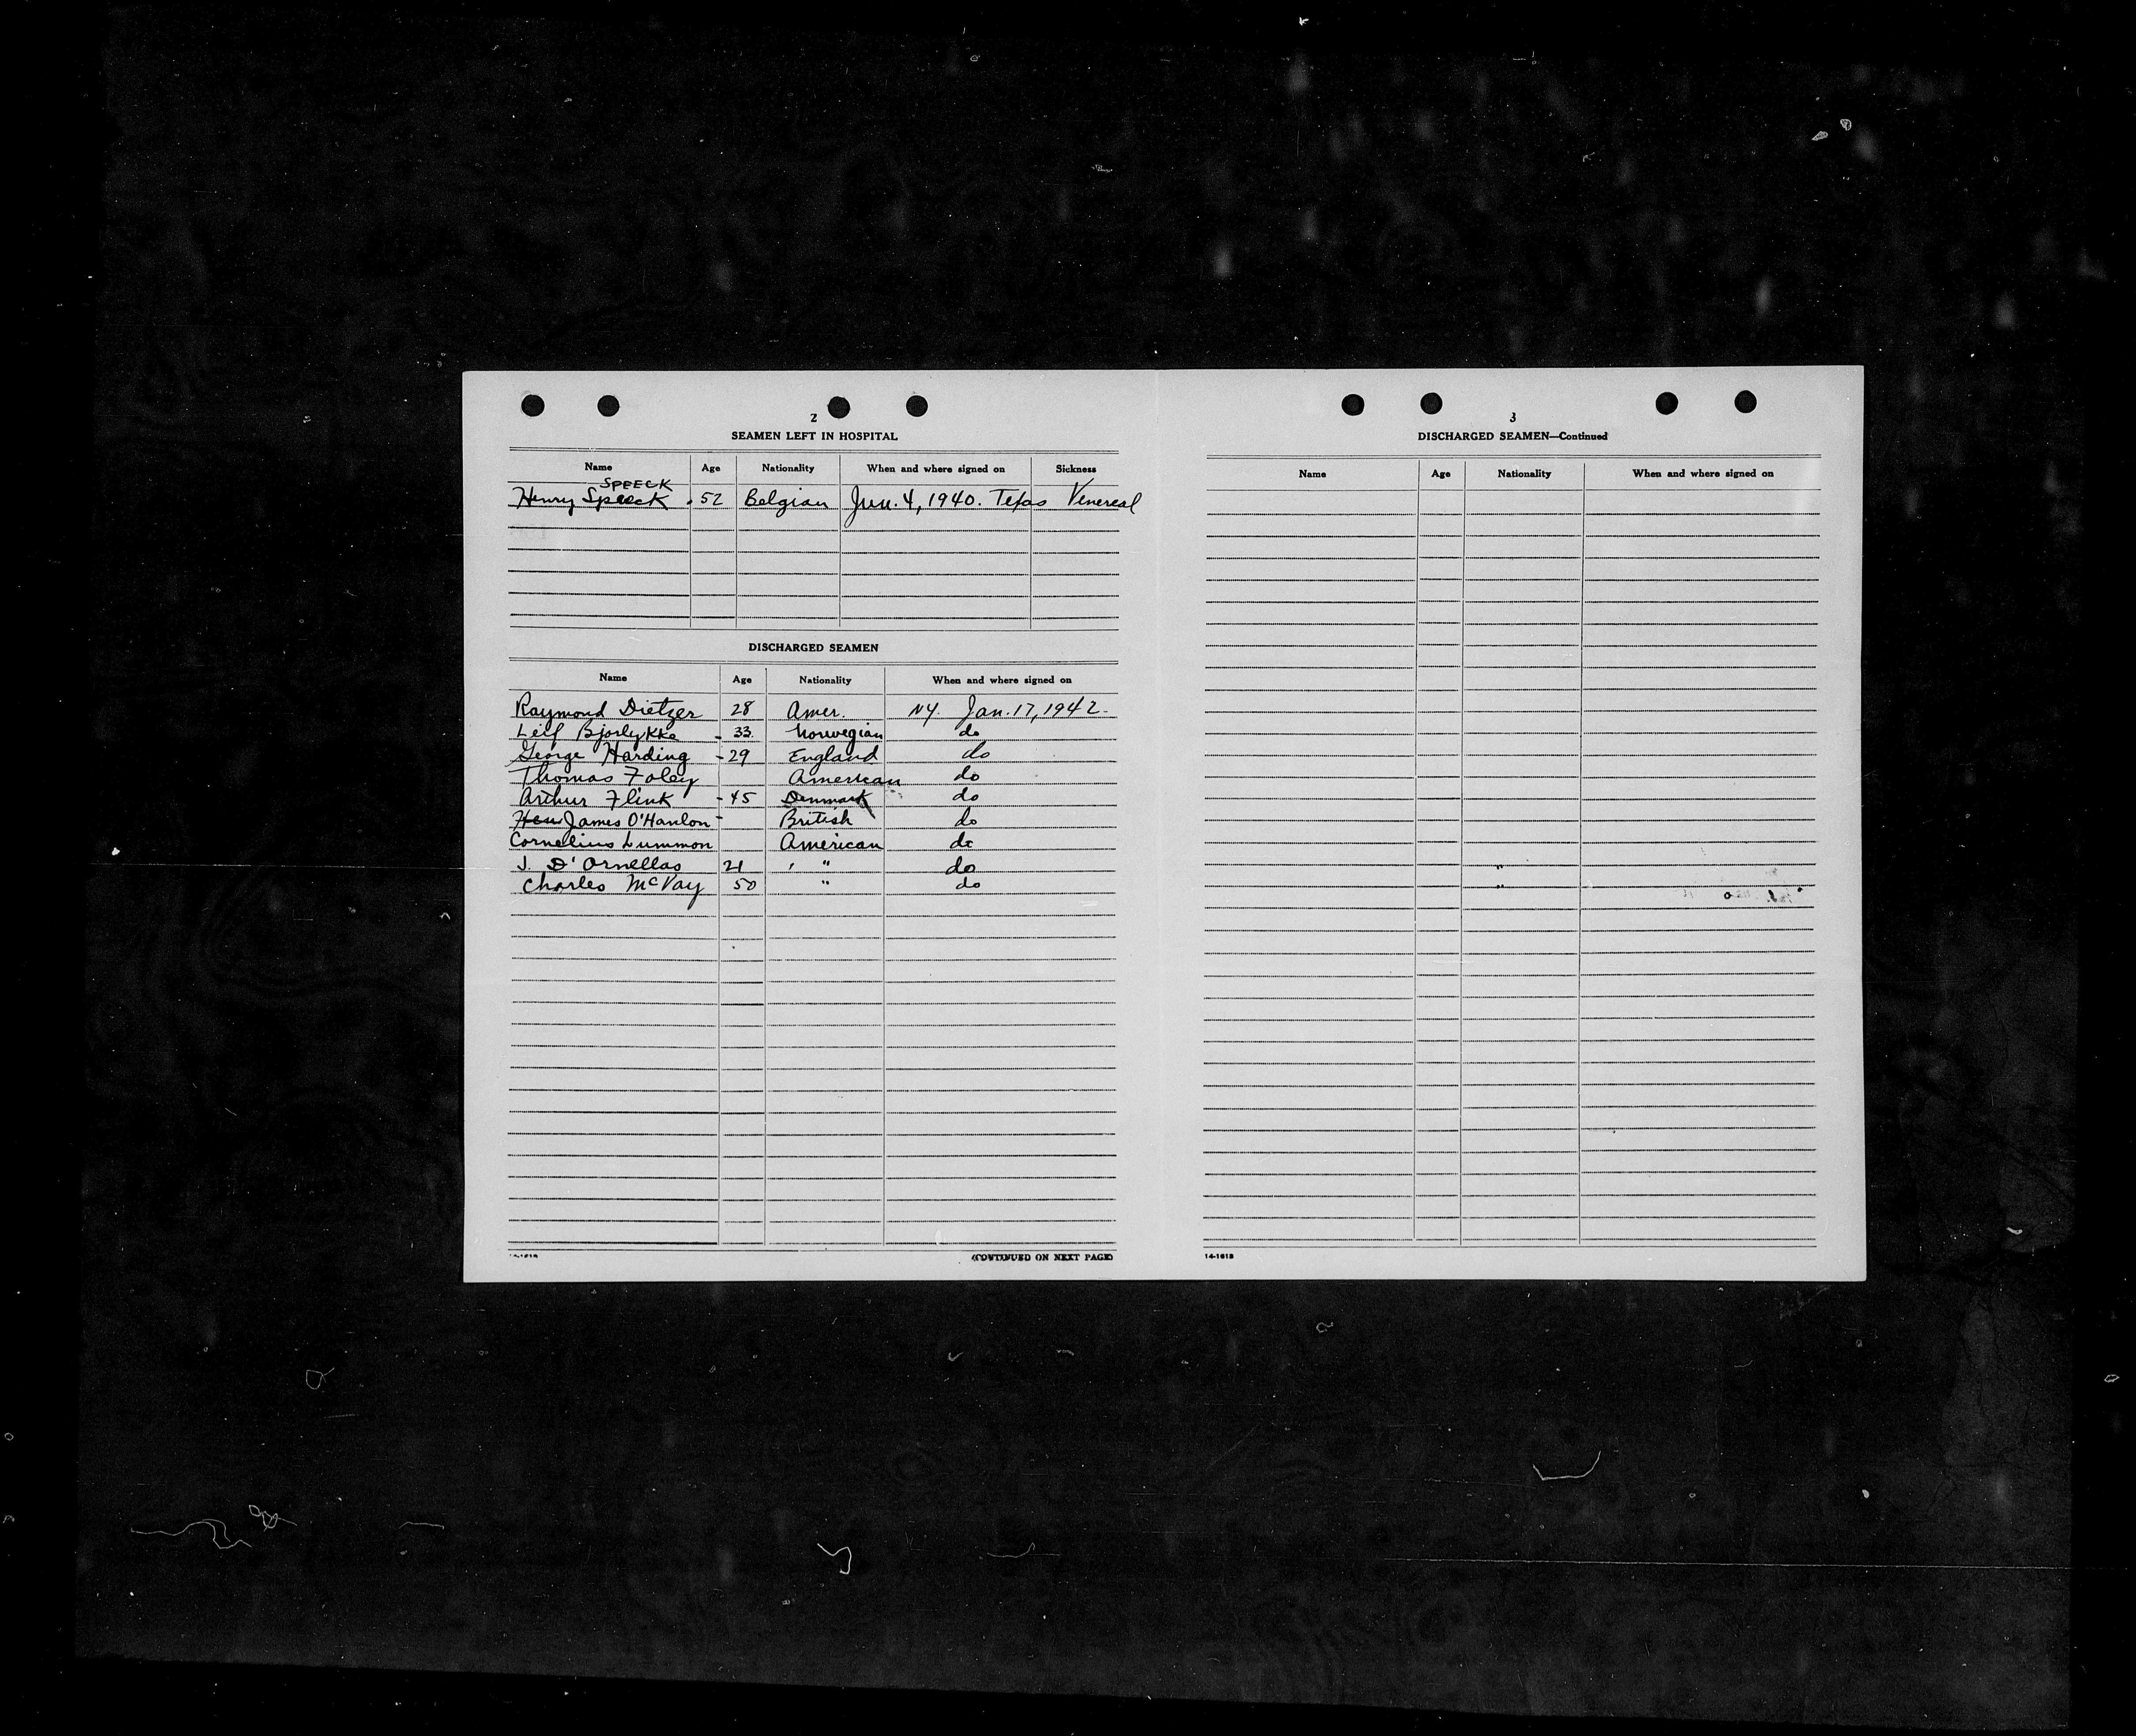 2
SEAMEN LEFT IN HOSPITAL
Name Age Nationality When and where signed on Sickness
SPEECK
Henry Speeck 52 Belgian Jun. 4, 1940. Texas Venereal
DISCHARGED SEAMEN
Name Age Nationality When and where signed on
Raymond Dietzer 28 Amer. NY. Jan. 17, 1942.
Leif Bjorlykke 33 Norwegian do
George Harding 29 England do
Thomas Foley American do
Arthur Flink 45 Denmark do
James O'Hanlon British do
Cornelius Lummon American do
J. D'Ornellas 21 " do
Charles McVay 50 " do
(CONTINUED ON NEXT PAGE)
3
DISCHARGED SEAMEN—Continued
Name Age Nationality When and where signed on
"
"
14-1618